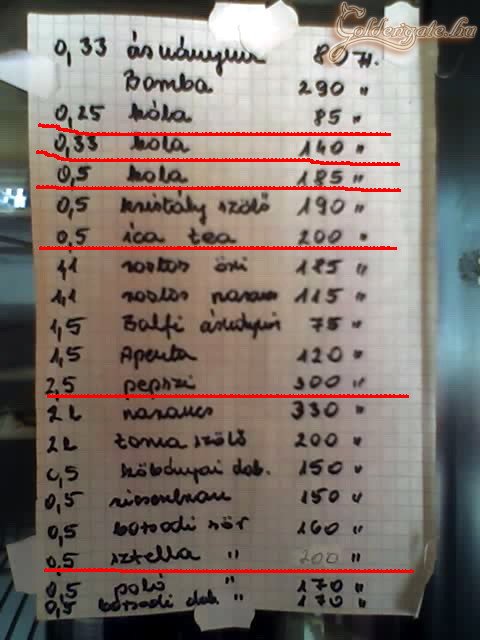 Goldengate.hu
0,33 ásványviz 80 Ft.
Bomba 290 "
0,25 kóla 85 "
0,33 kola 140 "
0,5 kola 185 "
0,5 kristály szölö 190 "
0,5 ica tea 200 "
1,1 rostos öxi 185 "
1,1 rostos narancs 115 "
1,5 Balfi ásványviz 75 "
1,5 Apenta 120 "
2,5 pepszi 300 "
2L narancs 330 "
2L tonia szölö 200 "
0,5 köbányai dob. 150 "
0,5 riesenbrau 150 "
0,5 borsodi sör 160 "
0,5 sztella " 200 "
0,5 poló " 170 "
0,5 borsodi dob. " 170 "